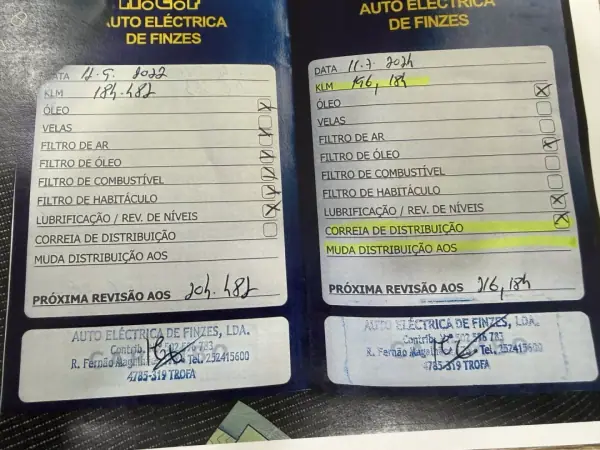 AUTO ELÉCTRICA
DE FINZES
DATA 12.5.2022
KLM 184.482
ÓLEO
VELAS
FILTRO DE AR
FILTRO DE ÓLEO
FILTRO DE COMBUSTÍVEL
FILTRO DE HABITÁCULO
LUBRIFICAÇÃO / REV. DE NÍVEIS
CORREIA DE DISTRIBUIÇÃO
MUDA DISTRIBUIÇÃO AOS
PRÓXIMA REVISÃO AOS 204.482
AUTO ELÉCTRICA DE FINZES, LDA.
Contrib. 502 596 703
R. Fernão Magalh Tel. 252415600
4785-319 TROFA
AUTO ELÉCTRICA
DE FINZES
DATA 11.7.2024
KLM 196,184
ÓLEO
VELAS
FILTRO DE AR
FILTRO DE ÓLEO
FILTRO DE COMBUSTÍVEL
FILTRO DE HABITÁCULO
LUBRIFICAÇÃO / REV. DE NÍVEIS
CORREIA DE DISTRIBUIÇÃO
MUDA DISTRIBUIÇÃO AOS
PRÓXIMA REVISÃO AOS 216,184
AUTO ELÉCTRICA DE FINZES, LDA.
Contrib. 502 596 703
R. Fernão Magalh Tel. 252415600
4785-319 TROFA